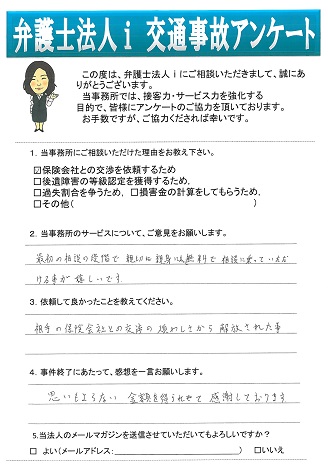 弁護士法人i 交通事故アンケート
この度は、弁護士法人iにご相談いただきまして、誠にあ
りがとうございます。
当事務所では、接客力・サービス力を強化する
目的で、皆様にアンケートのご協力を頂いております。
お手数ですが、ご協力くだされば幸いです。
1. 当事務所にご相談いただけた理由をお教え下さい。
☑保険会社との交渉を依頼するため
□後遺障害の等級認定を獲得するため、
□過失割合を争うため、□損害金の計算をしてもらうため、
□その他( )
2. 当事務所のサービスについて、ご意見をお願いします。
最初の相談の段階で 親切に 無料で 相談に乗っていただ
ける事が 嬉しいです
3. 依頼して良かったことを教えてください。
相手の保険会社との交渉の煩わしさから 解放された事
4. 事件終了にあたって、感想を一言お願いします。
思いもよらない 金額を得られて 感謝しております
5.当法人のメールマガジンを送信させていただいてもよろしいですか?
□ よい(メールアドレス: ) □いいえ